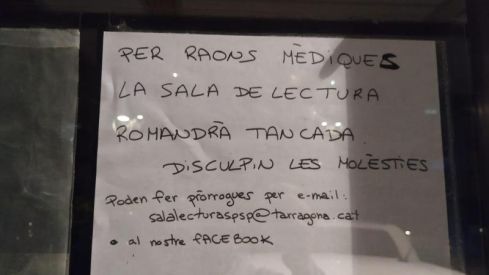 PER RAONS MÈDIQUES
LA SALA DE LECTURA
ROMANDRÀ TANCADA
DISCULPIN LES MOLÈSTIES
Poden fer pròrrogues per e-mail:
salalecturaspsp@tarragona.cat
o al nostre FACEBOOK